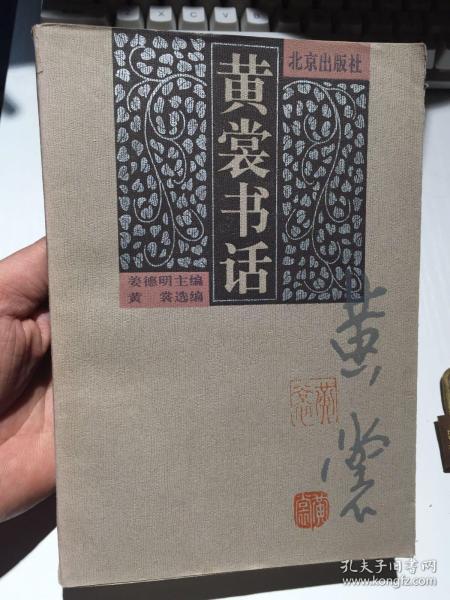 北京出版社
黄裳书话
姜德明主编
黄裳选编
黄裳
黄裳
黄裳
孔夫子旧书网
www.kongfz.com